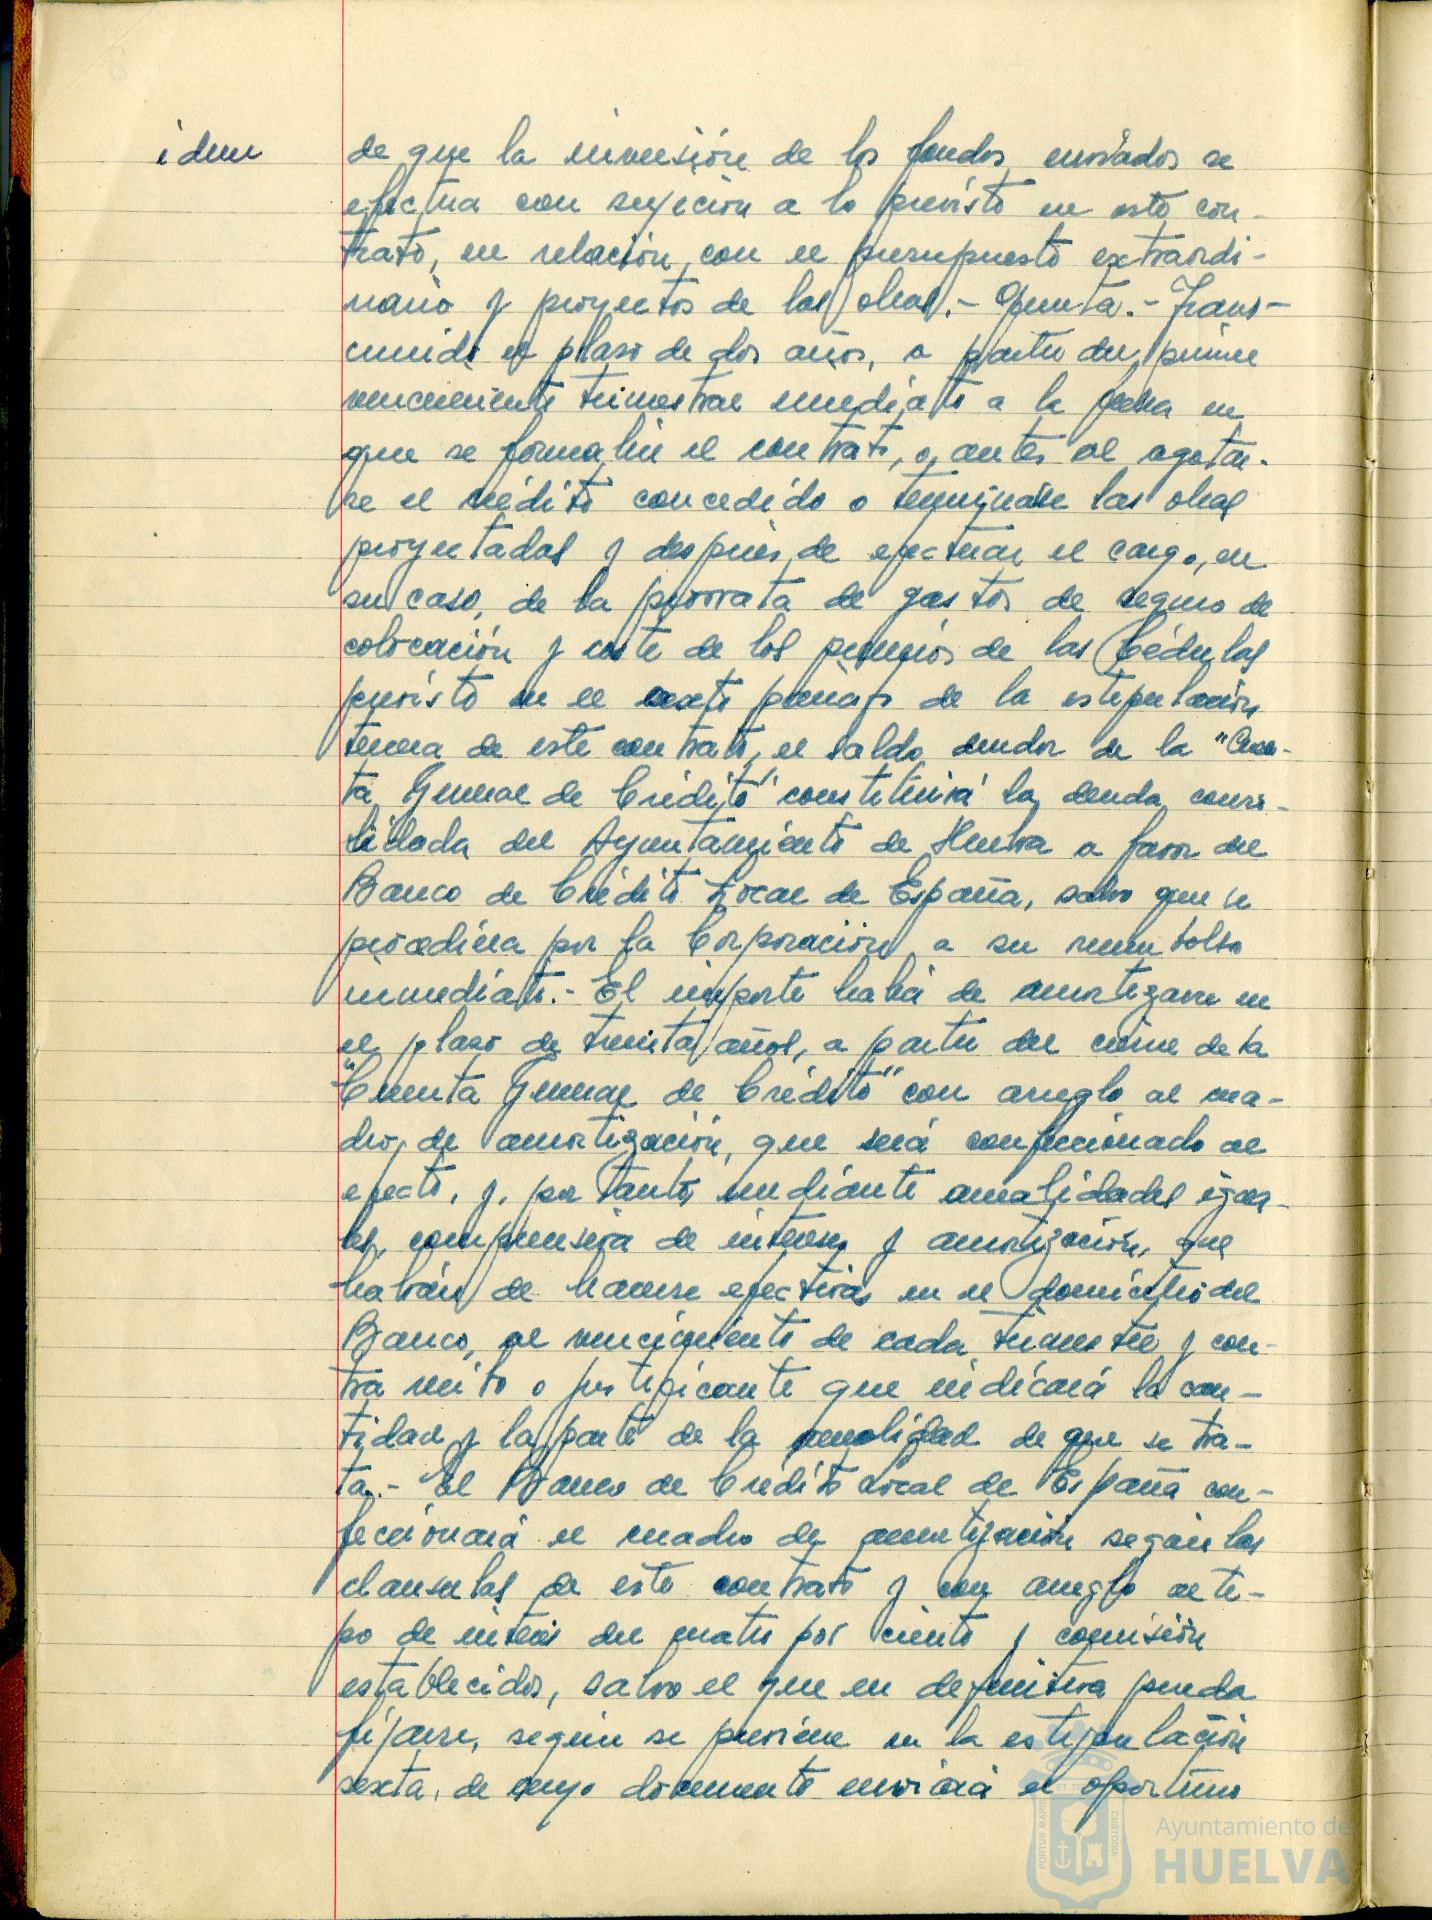 idem
de que la inversión de los fondos enviados se
efectua con sujeción a lo previsto en este con-
trato, en relación con el presupuesto extraordi-
nario y proyectos de las obras.- Quinta.- Trans-
currido el plaso de dos años, a partir del primer
vencimiento trimestral inmediato a la fecha en
que se formalice el contrato, o, antes al agotar-
se el crédito concedido o terminarse las obras
proyectadas y después de efectuar el cargo, en
su caso, de la prorrata de gastos de seguro de
colocación y coste de los premios de las Cédulas
previsto en el sexto párrafo de la estipulación
tercera de este contrato, el saldo deudor de la "Cuen-
ta General de Crédito" constituirá la deuda conso-
lidada del Ayuntamiento de Huelva a favor del
Banco de Crédito Local de España, salvo que se
procediera por la Corporación a su reembolso
inmediato.- El importe habrá de amortizarse en
el plaso de treinta años, a partir del cierre de la
"Cuenta General de Crédito" con arreglo al cua-
dro, de amortización, que será confeccionado al
efecto, y, por tanto, mediante anualidades igua-
les, comprensiva de intereses y amortización, que
habrán de hacerse efectivas en el domicilio del
Banco, al vencimiento de cada trimestre y con-
tra recibo o justificante que indicará la can-
tidad y la parte de la anualidad de que se tra-
ta.- El Banco de Crédito Local de España con-
feccionará el cuadro de amortización según las
clausulas de este contrato y con arreglo al ti-
po de interés del cuatro por ciento y comisión
establecidos, salvo el que en definitiva pueda
fijarse, según se previene en la estipulación
sexta, de cuyo documento enviará el oportuno
PORTUS MARIS
CUSTODIA
Ayuntamiento de
HUELVA